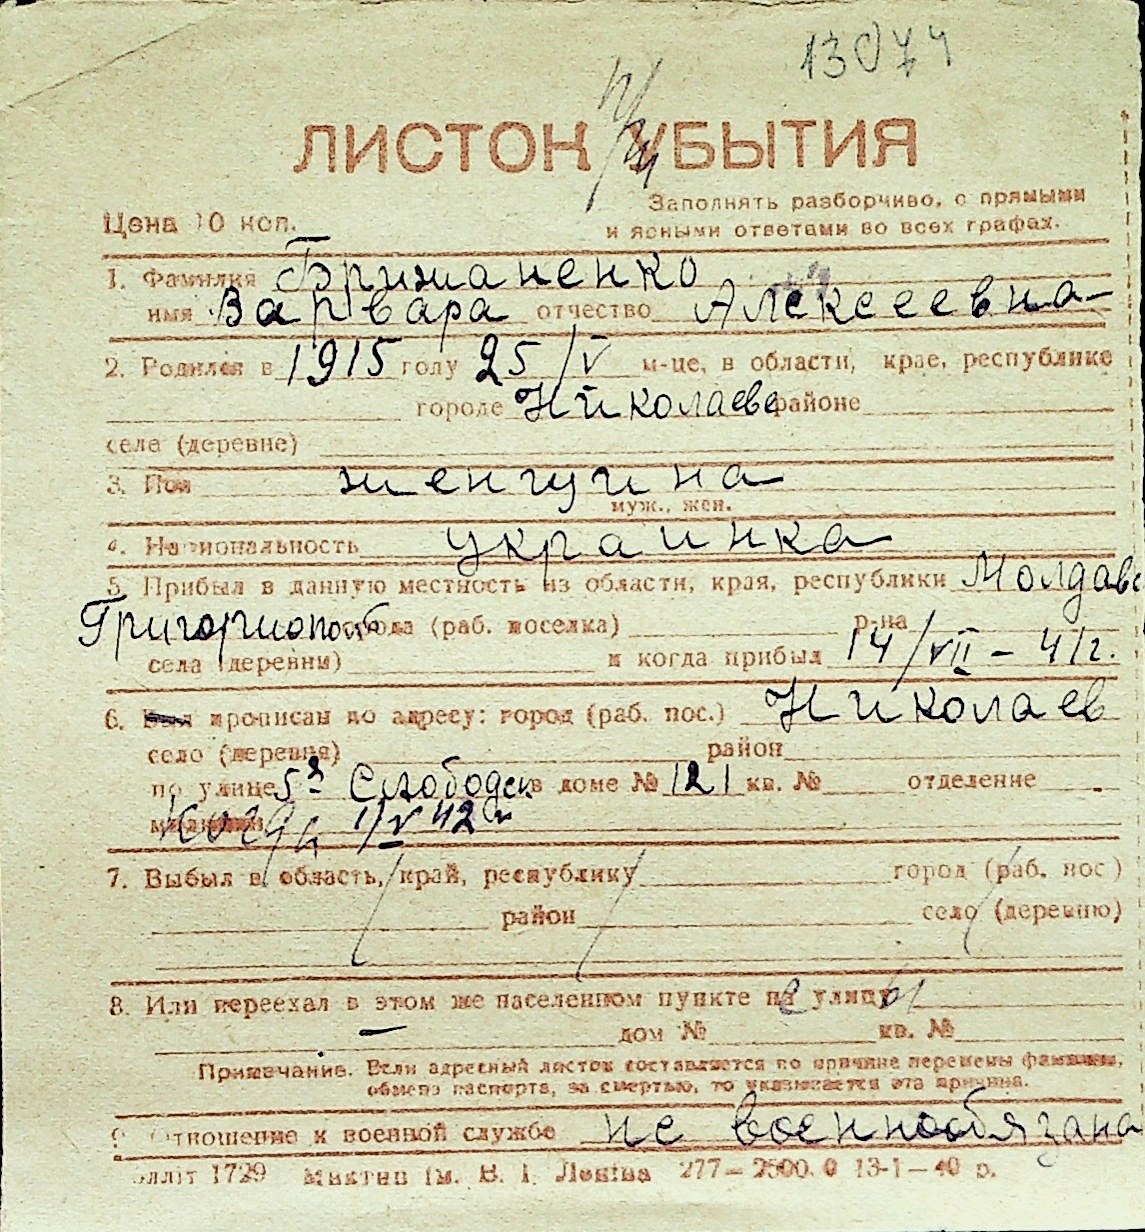 13074
ЛИСТОК УБЫТИЯ
Заполнять разборчиво, с прямыми
Цена 10 коп.
и ясными ответами во всех графах.
1. Фамилия Брижаненко
имя Варвара отчество Алексеевна
2. Родился в 1915 году 25/V м-це, в области, крае, республике
городе Николаеве районе
селе (деревне)
3. Пол женщина
муж., жен.
4. Национальность украинка
5. Прибыл в данную местность из области, края, республики Молдавс
Григориополь города (раб. поселка) р-на
села (деревни) и когда прибыл 14/VII – 41г.
6. Был прописан по адресу: город (раб. пос.) Николаев
село (деревня) район
по улице 5я Слободск в доме № 121 кв. № отделение
милиции когда 1/V 42
7. Выбыл в область, край, республику город (раб. пос.)
район село (деревню)
8. Или переехал в этом же населенном пункте на улицу
– дом № кв. №
Примечание. Если адресный листок составляется по причине перемены фамилии,
обмена паспорта, за смертью, то указывается эта причина.
9. Отношение к военной службе не военнообязана
1729 Миктип ім. В. І. Леніна 277–2500.0 13-1–40 р.